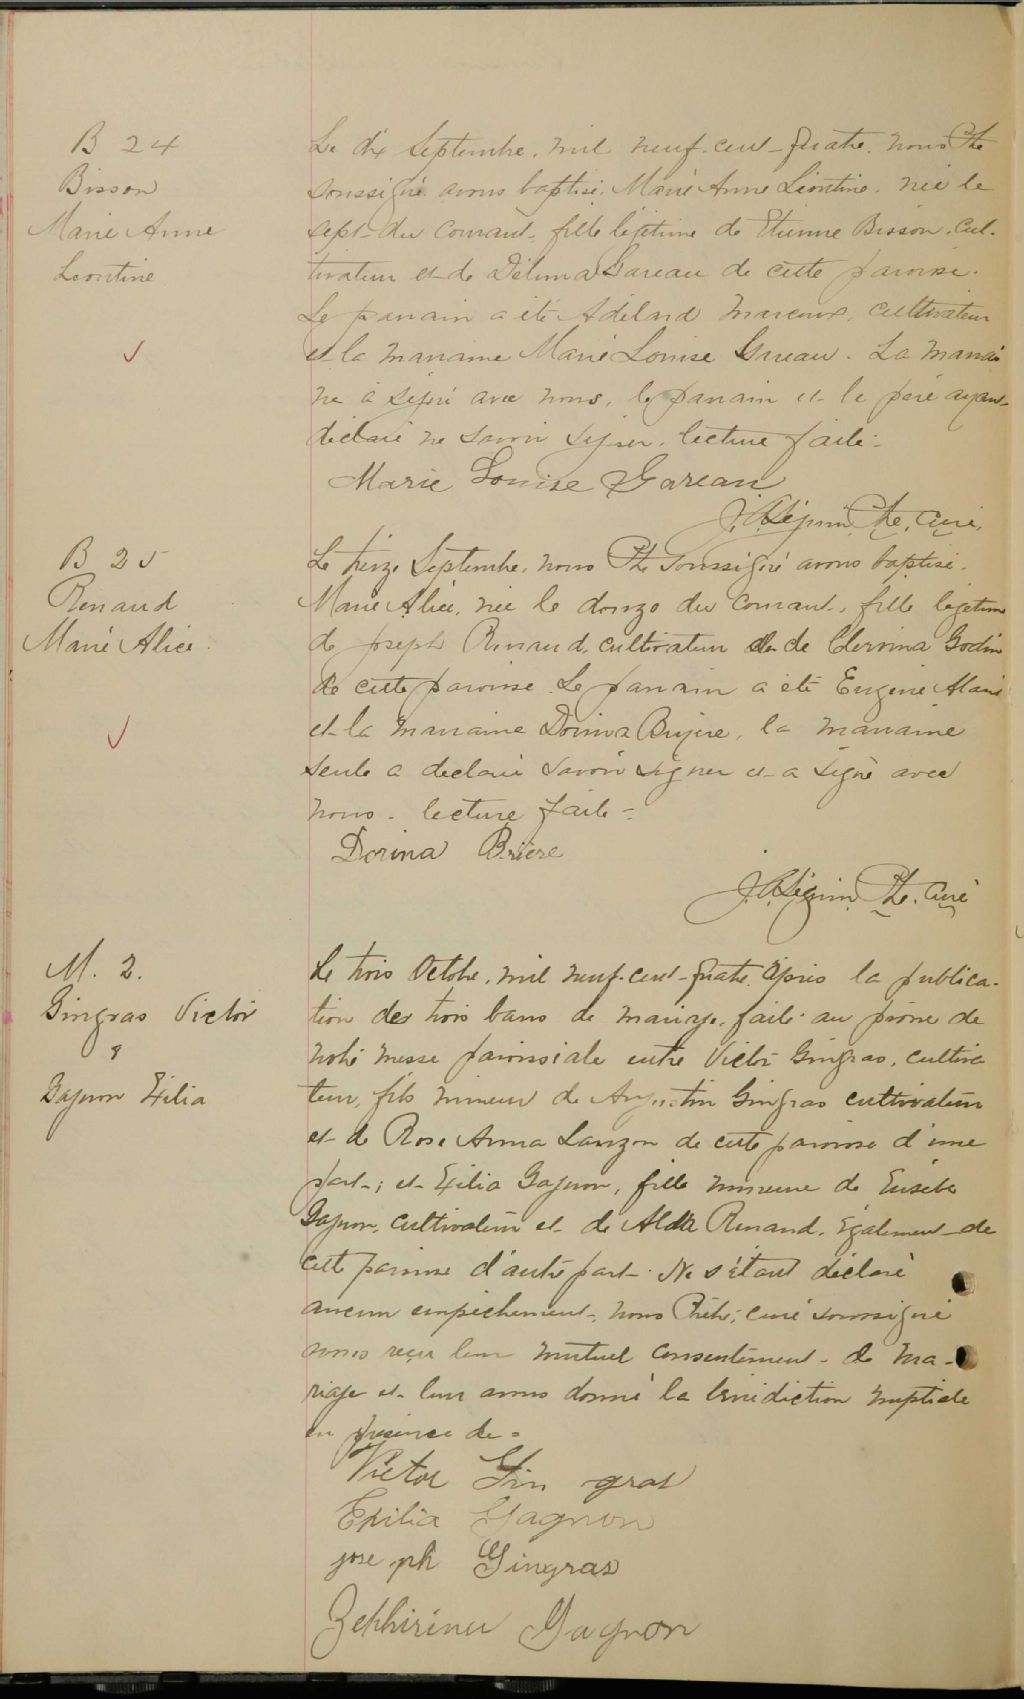 B 24
Bisson
Marie Anne
Leontine
Le dix Septembre, mil neuf-cent-quatre, nous Ptre
soussigné avons baptisé, Marie Anne Léontine, née le
sept du courant, fille légitime de Etienne Bisson, cul-
tivateur et de Délima Gareau de cette paroisse.
Le parrain a été Adélard Marcoux, cultivateur
et la marraine Marie Louise Gareau. La marrai
ne a signé avec nous, le parrain et le père ayant
déclaré ne savoir signer. lecture faite.
Marie Louise Garean
Ptre, curé
B 25
Renaud
Marie Alice
Le treize Septembre, nous Ptre soussigné avons baptisé.
Marie Alice, née le douze du courant, fille légitime
de Joseph Renaud, cultivateur de Clervina Godin
de cette paroisse. Le parrain a été Eugène
et la marraine Dorina Brière, la marraine
seule a déclaré savoir signer et a signé avec
nous. lecture faite
Dorina Brière
Ptre. Curé
M. 2.
Gingras Victor
&
Gagnon Exilia
Le trois Octobre, mil neuf-cent-quatre, après la publica-
tion des trois bans de mariage, faite au prône de
notre messe paroissiale entre Victor Gingras, cultiva
teur, fils mineur de Augustin Gingras cultivateur
et de Rose Anna Lauzon de cette paroisse d'une
part; et Exilia Gagnon, fille mineure de Eusèbe
Gagnon, cultivateur et de Alda Renaud, également de
cette paroisse d'autre part. Ne s'étant déclaré
aucun empêchement, nous Prêtre, curé soussigné
avons reçu leur mutuel consentement de ma-
riage et leur avons donné la bénédiction nuptiale
en présence de
Victor Gin gras
Exilia Gagnon
jose ph Gingras
Gagnon